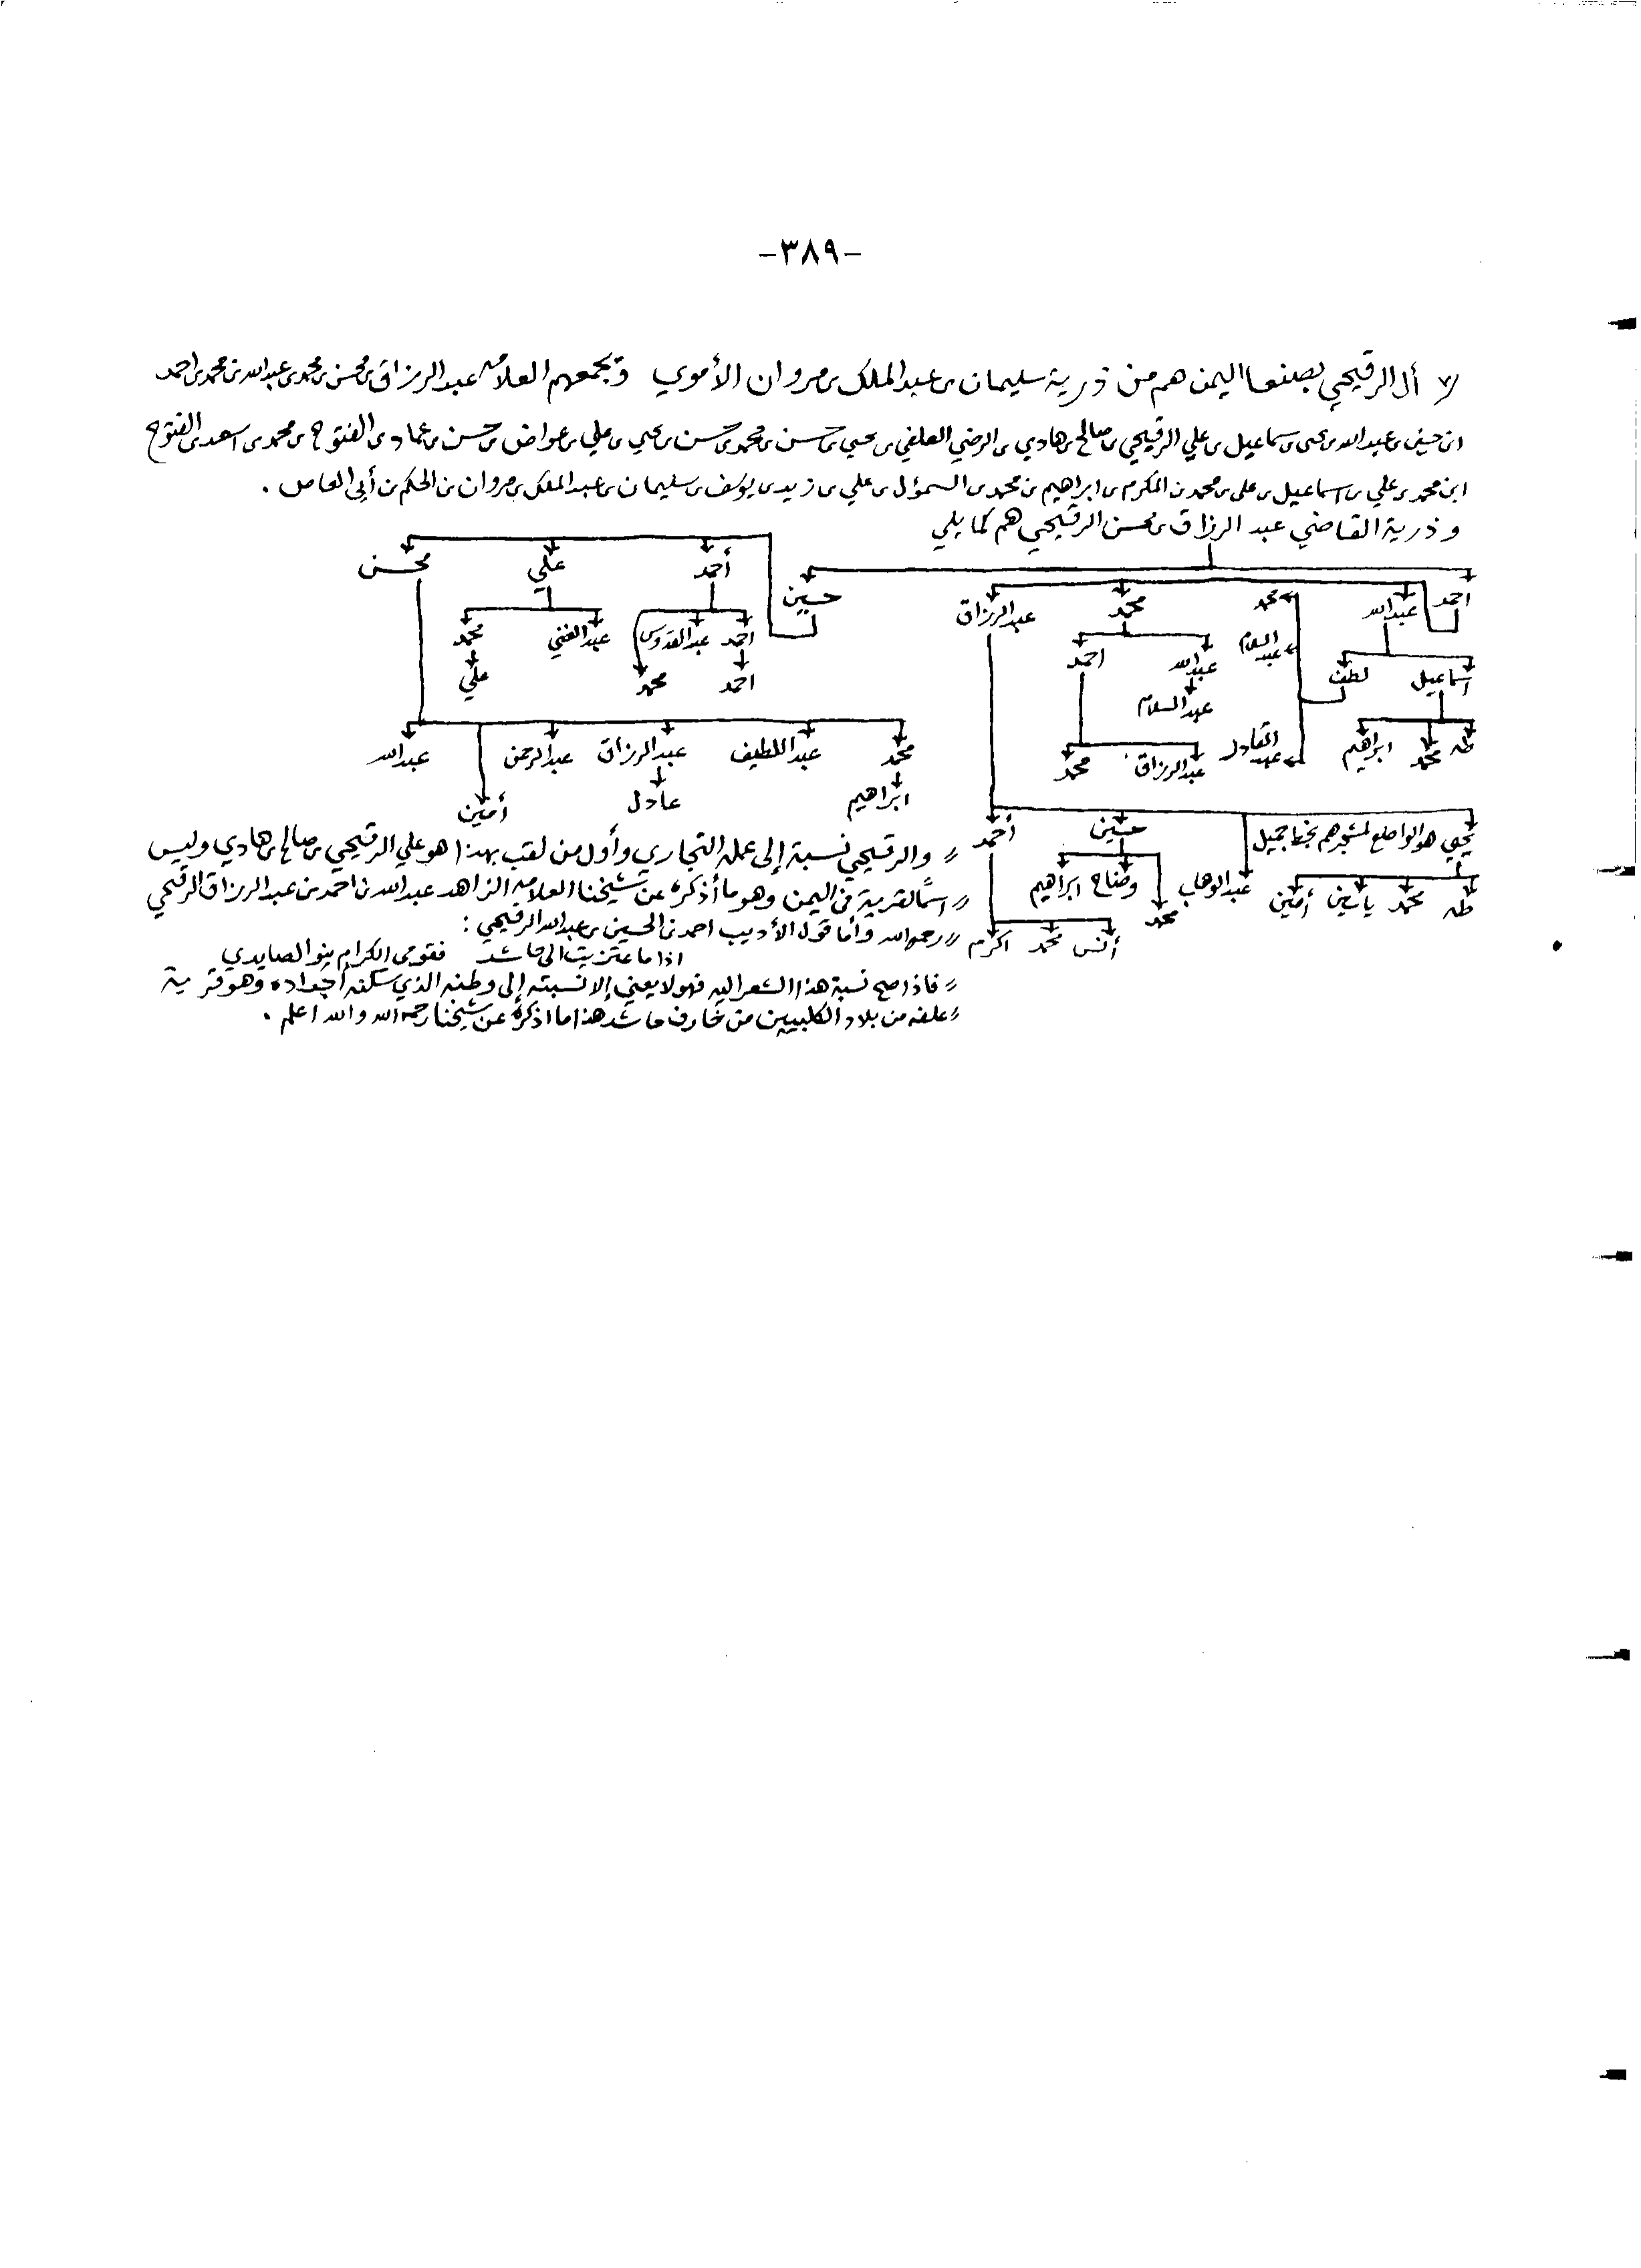 -٣٨٩-
آل الرقيحي بصنعا اليمن هم من ذرية سليمان بن عبدالملك بن مروان الأموي ويجمعهم العلامه عبدالرزاق بن محسن بن محمد بن عبدالله بن محمد بن احمد
ابن حسين بن عبدالله بن يحيى بن اسماعيل بن علي الرقيحي بن صالح بن هادي بن الرضي العلفي بن يحيى بن حسن بن محمد بن حسن بن يحيى بن علي بن عواض بن حسن بن عماد بن الفتوح بن محمد بن اسعد بن الفتوح
ابن محمد بن علي بن اسماعيل بن علي بن محمد بن المكرم بن ابراهيم بن محمد بن السموؤل بن علي بن زيد بن يوسف بن سليمان بن عبدالملك بن مروان بن الحكم بن أبي العاص .
وذرية القاضي عبد الرزاق بن محسن الرقيحي هم كما يلي
احمد حسين
عبدالله محمد محمد عبدالرزاق
اسماعيل لطف عبدالسلام عبدالله احمد
عبدالسلام
طه محمد ابراهيم عبدالقادر عبدالرزاق محمد
يحيى هو الواضع لمشجرهم بخط جميل عبدالوهاب حسين أحمد
طه محمد ياسين أمين محمد وضاح ابراهيم
أنس محمد اكرم
أحمد علي محسن
احمد عبدالقدوس عبدالغني محمد
احمد محمد علي
محمد عبداللطيف عبدالرزاق عبدالرحمن عبدالله
ابراهيم عادل أمين
" والرقيحي نسبة إلى عمله التجاري وأول من لقب بهذا هو علي الرقيحي بن صالح بن هادي وليس
" اسمًا لقرية في اليمن وهو ما أذكره عن شيخنا العلامه الزاهد عبدالله بن احمد بن عبدالرزاق الرقيحي
" رحمه الله وأما قول الأديب احمد بن الحسين بن عبدالله الرقيحي :
اذا ما عتزيت الى حاشد فقومي الكرام بنو الصايدي
" فاذا صح نسبة هذا الشعر اليه فهو لا يعني إلا نسبته إلى وطنه الذي سكنه أجداده وهو قرية
" علفه من بلاد الكلبيين من خارف حاشد هذا ما اذكره عن شيخنا رحمه الله والله اعلم .